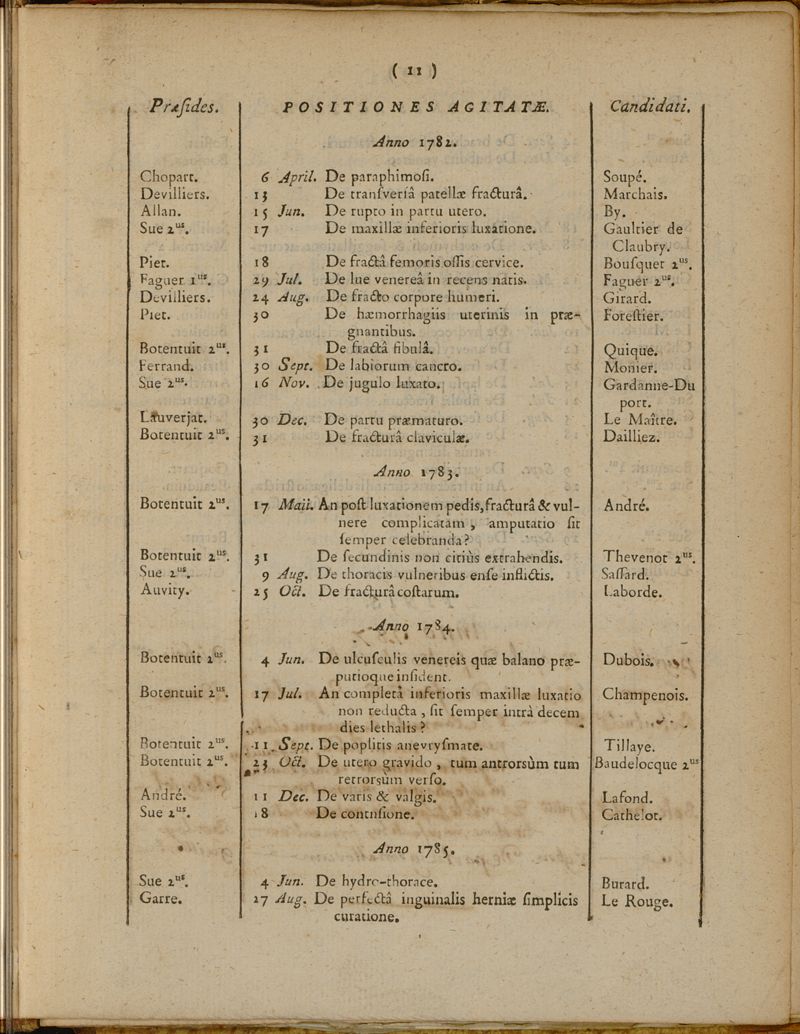 ( 11 )
Præsides. POSITIONES AGITATÆ. Candidati.
Anno 1782.
Chopart. 6 April. De paraphimosi. Soupé.
Devilliers. 13 De transversâ patellæ fracturâ. Marchais.
Allan. 15 Jun. De rupto in partu utero. By.
Sue 2us. 17 De maxillæ inferioris luxatione. Gaultier de
Claubry.
Piet. 18 De fractâ femoris ossis cervice. Bousquet 2us.
Faguer 1us. 29 Jul. De lue venereâ in recens natis. Faguer 2us.
Devilliers. 24 Aug. De fracto corpore humeri. Girard.
Piet. 30 De hæmorrhagiis uterinis in præ- Forestier.
gnantibus.
Botentuit 2us. 31 De fractâ fibulâ. Quique.
Ferrand. 30 Sept. De labiorum cancro. Monier.
Sue 2us. 16 Nov. De jugulo luxato. Gardanne-Du
port.
Lauverjat. 30 Dec. De partu præmaturo. Le Maître.
Botentuit 2us. 31 De fracturâ claviculæ. Dailliez.
Anno 1783.
Botentuit 2us. 17 Maii. An post luxationem pedis, fracturâ & vul- André.
nere complicatam, amputatio sit
semper celebranda?
Botentuit 2us. 31 De secundinis non citiùs extrahendis. Thevenot 2us.
Sue 2us. 9 Aug. De thoracis vulneribus ense inflictis. Saffard.
Auvity. 25 Oct. De fracturâ costarum. Laborde.
Anno 1784.
Botentuit 2us. 4 Jun. De ulcusculis venereis quæ balano præ- Dubois.
putioque insident.
Botentuit 2us. 17 Jul. An completâ inferioris maxillæ luxatio Champenois.
non reducta, sit semper intrà decem
dies lethalis?
Botentuit 2us. 11 Sept. De poplitis anevrysmate. Tillaye.
Botentuit 2us. 23 Oct. De utero gravido, tum antrorsùm tum Baudelocque 2us
retrorsùm verso.
André. 11 Dec. De varis & valgis. Lafond.
Sue 2us. 18 De contusione. Cathelot.
Anno 1785.
Sue 2us. 4 Jun. De hydro-thorace. Burard.
Garre. 27 Aug. De perfectâ inguinalis herniæ simplicis Le Rouge.
curatione.